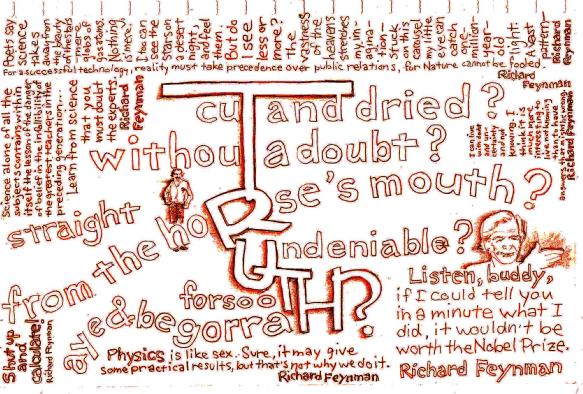 Poets say
science
takes
away from
the beauty
of the stars
—mere
globs of
gas atoms.
Nothing
is "mere".
I too can
see the
stars on
a desert
night,
and feel
them.
But do
I see
less or
more?
The
vastness
of the
heavens
stretches
my im-
agina-
tion—
stuck
on this
carousel
my little
eye can
catch
one-
million-
year-
old
light.
A vast
pattern—
Richard
Feynman
For a successful technology, reality must take precedence over public relations, for Nature cannot be fooled.
Richard
Feynman
Science alone of all the
subjects contains within
itself the lesson of the danger
of belief in the infallibility of
the greatest teachers in the
preceding generation...
Learn from science
that you
must doubt
the experts
Richard
Feynman
cut and dried?
without a doubt?
straight
from the horse's mouth?
Undeniable?
forsooTH?
aye & begorraH?
TRUTH?
I can live
with doubt
and un-
certainty
and not
knowing. I
think it is
much more
interesting to
live not knowing
than to have
answers
Listen, buddy,
if I could tell you
in a minute what I
did, it wouldn't be
worth the Nobel Prize.
Richard Feynman
Shut up
and
calculate!
Richard Feynman
Physics is like sex. Sure, it may give
some practical results, but that's not why we do it.
Richard Feynman